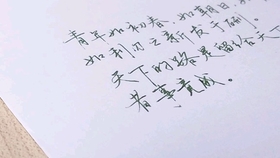 青年如初春，如朝日，
如利刃之新发于硎。
天下的路是留给天下
有 志